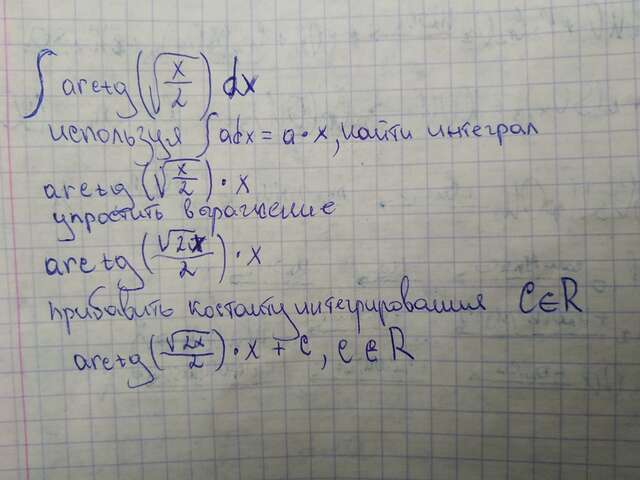 ∫ arctg(√(x/2)) dx
используя ∫adx = a·x, найти интеграл
arctg(√(x/2))·x
упростить выражение
arctg(√2x/2)·x
прибавить костанту интегрирования C∈R
arctg(√2x/2)·x + C, C∈R